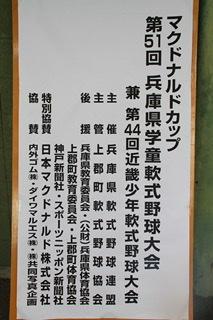 マクドナルドカップ
第51回 兵庫県学童軟式野球大会
兼 第44回近畿少年軟式野球大会
主催 兵庫県軟式野球連盟
主管 上郡町軟式野球協会
後援 兵庫県教育委員会・(公財)兵庫県体育協会
上郡町教育委員会・上郡町体育協会
神戸新聞社・スポーツニッポン新聞社
特別協賛 日本マクドナルド株式会社
協賛 内外ゴム㈱・ダイワマルエス㈱・㈱共同写真企画